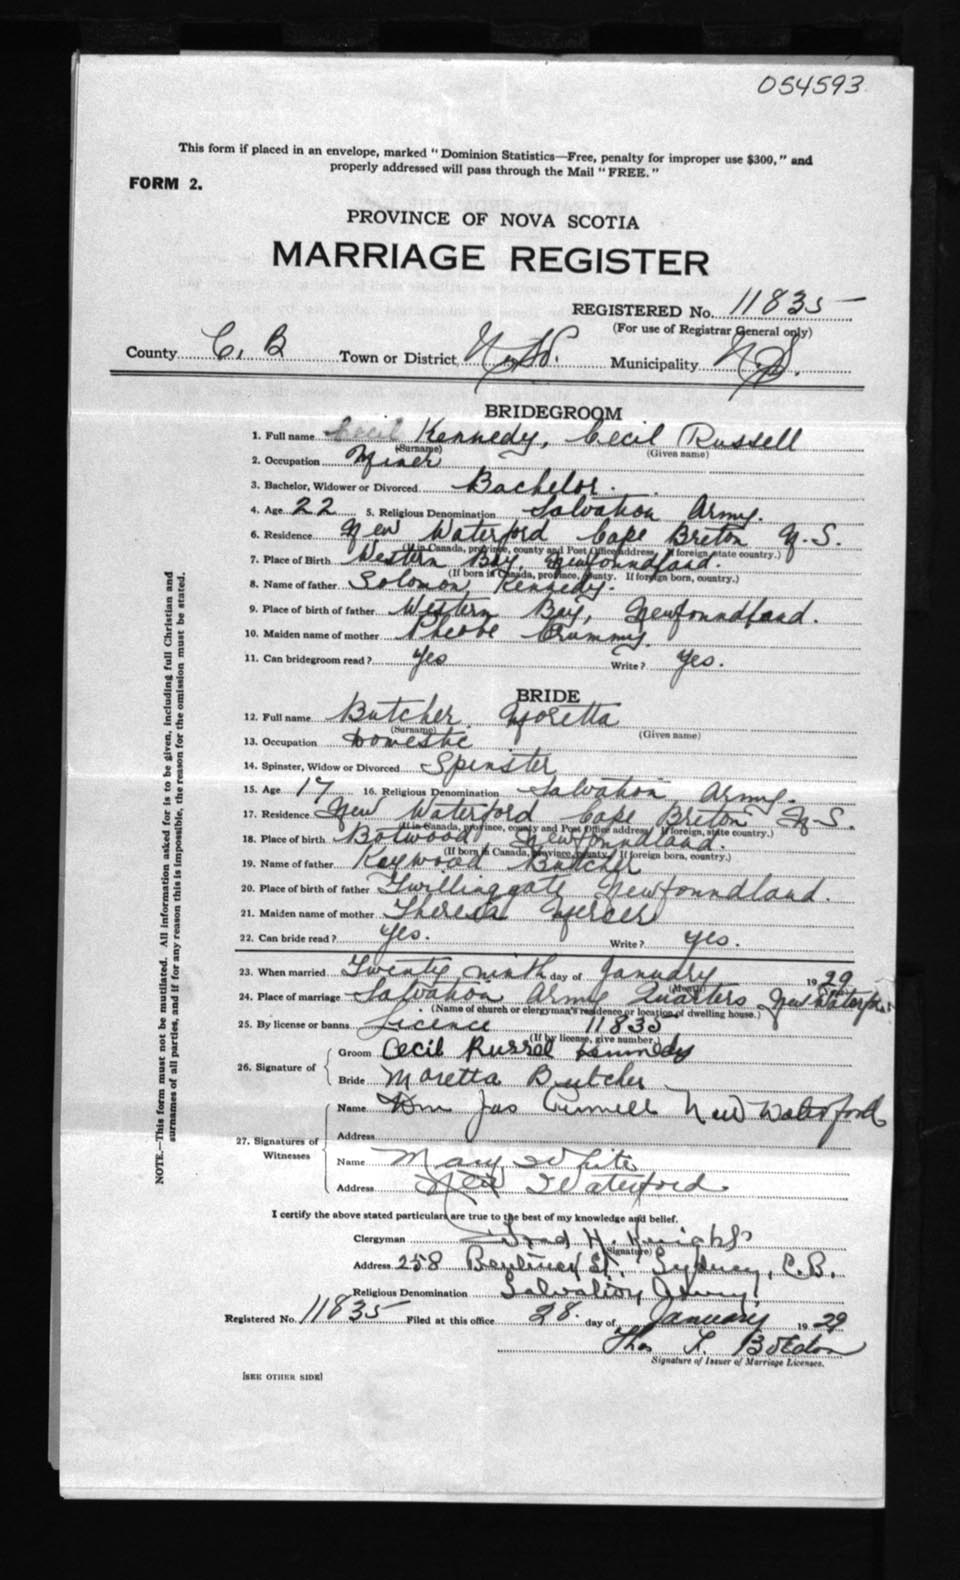 054593
This form if placed in an envelope, marked "Dominion Statistics—Free, penalty for improper use $300," and
properly addressed will pass through the Mail "FREE."
FORM 2.
PROVINCE OF NOVA SCOTIA
MARRIAGE REGISTER
REGISTERED No. 11835
(For use of Registrar General only)
County C. B Town or District N. W. Municipality N.S.
BRIDEGROOM
1. Full name Cecil Kennedy, Cecil Russell
(Surname) (Given name)
2. Occupation Miner
3. Bachelor, Widower or Divorced Bachelor.
4. Age 22 5. Religious Denomination Salvation Army.
6. Residence New Waterford Cape Breton N.S.
(If in Canada, province, county and Post Office address, If foreign, state country.)
7. Place of Birth Western Bay, Newfoundland.
(If born in Canada, province, county. If foreign born, country.)
8. Name of father Solomon Kennedy.
9. Place of birth of father Western Bay, Newfoundland.
10. Maiden name of mother Pheobe Crummy.
11. Can bridegroom read? yes Write? yes.
BRIDE
12. Full name Butcher Moretta
(Surname) (Given name)
13. Occupation Domestic
14. Spinster, Widow or Divorced Spinster
15. Age 17 16. Religious Denomination Salvation Army.
17. Residence New Waterford Cape Breton N.S.
(If in Canada, province, county and Post Office address, If foreign, state country.)
18. Place of birth Botwood Newfoundland.
(If born in Canada, province, county. If foreign born, country.)
19. Name of father Kaywood Butcher
20. Place of birth of father Twillinggate Newfoundland.
21. Maiden name of mother Theresa Mercer
22. Can bride read? yes. Write? yes.
23. When married Twenty ninth day of January 1929
(Month)
24. Place of marriage Salvation Army Quarters New Waterford
(Name of church or clergyman's residence or location of dwelling house.)
25. By license or banns Licence 11835
(If by license, give number.)
26. Signature of Groom Cecil Russel Kennedy
Bride Moretta Butcher
27. Signatures of Witnesses Name Wm Jas New Waterford
Address
Name Mary White
Address New Waterford
I certify the above stated particulars are true to the best of my knowledge and belief.
Clergyman H. Knight
(Signature)
Address 258 St. Sydney, C.B.
Religious Denomination Salvation Army.
Registered No. 11835 Filed at this office 28. day of January 1929
Thos
Signature of Issuer of Marriage Licenses.
[SEE OTHER SIDE]
NOTE.—This form must not be mutilated. All information asked for is to be given, including full Christian and
surnames of all parties, and if for any reason this is impossible, the reason for the omission must be stated.